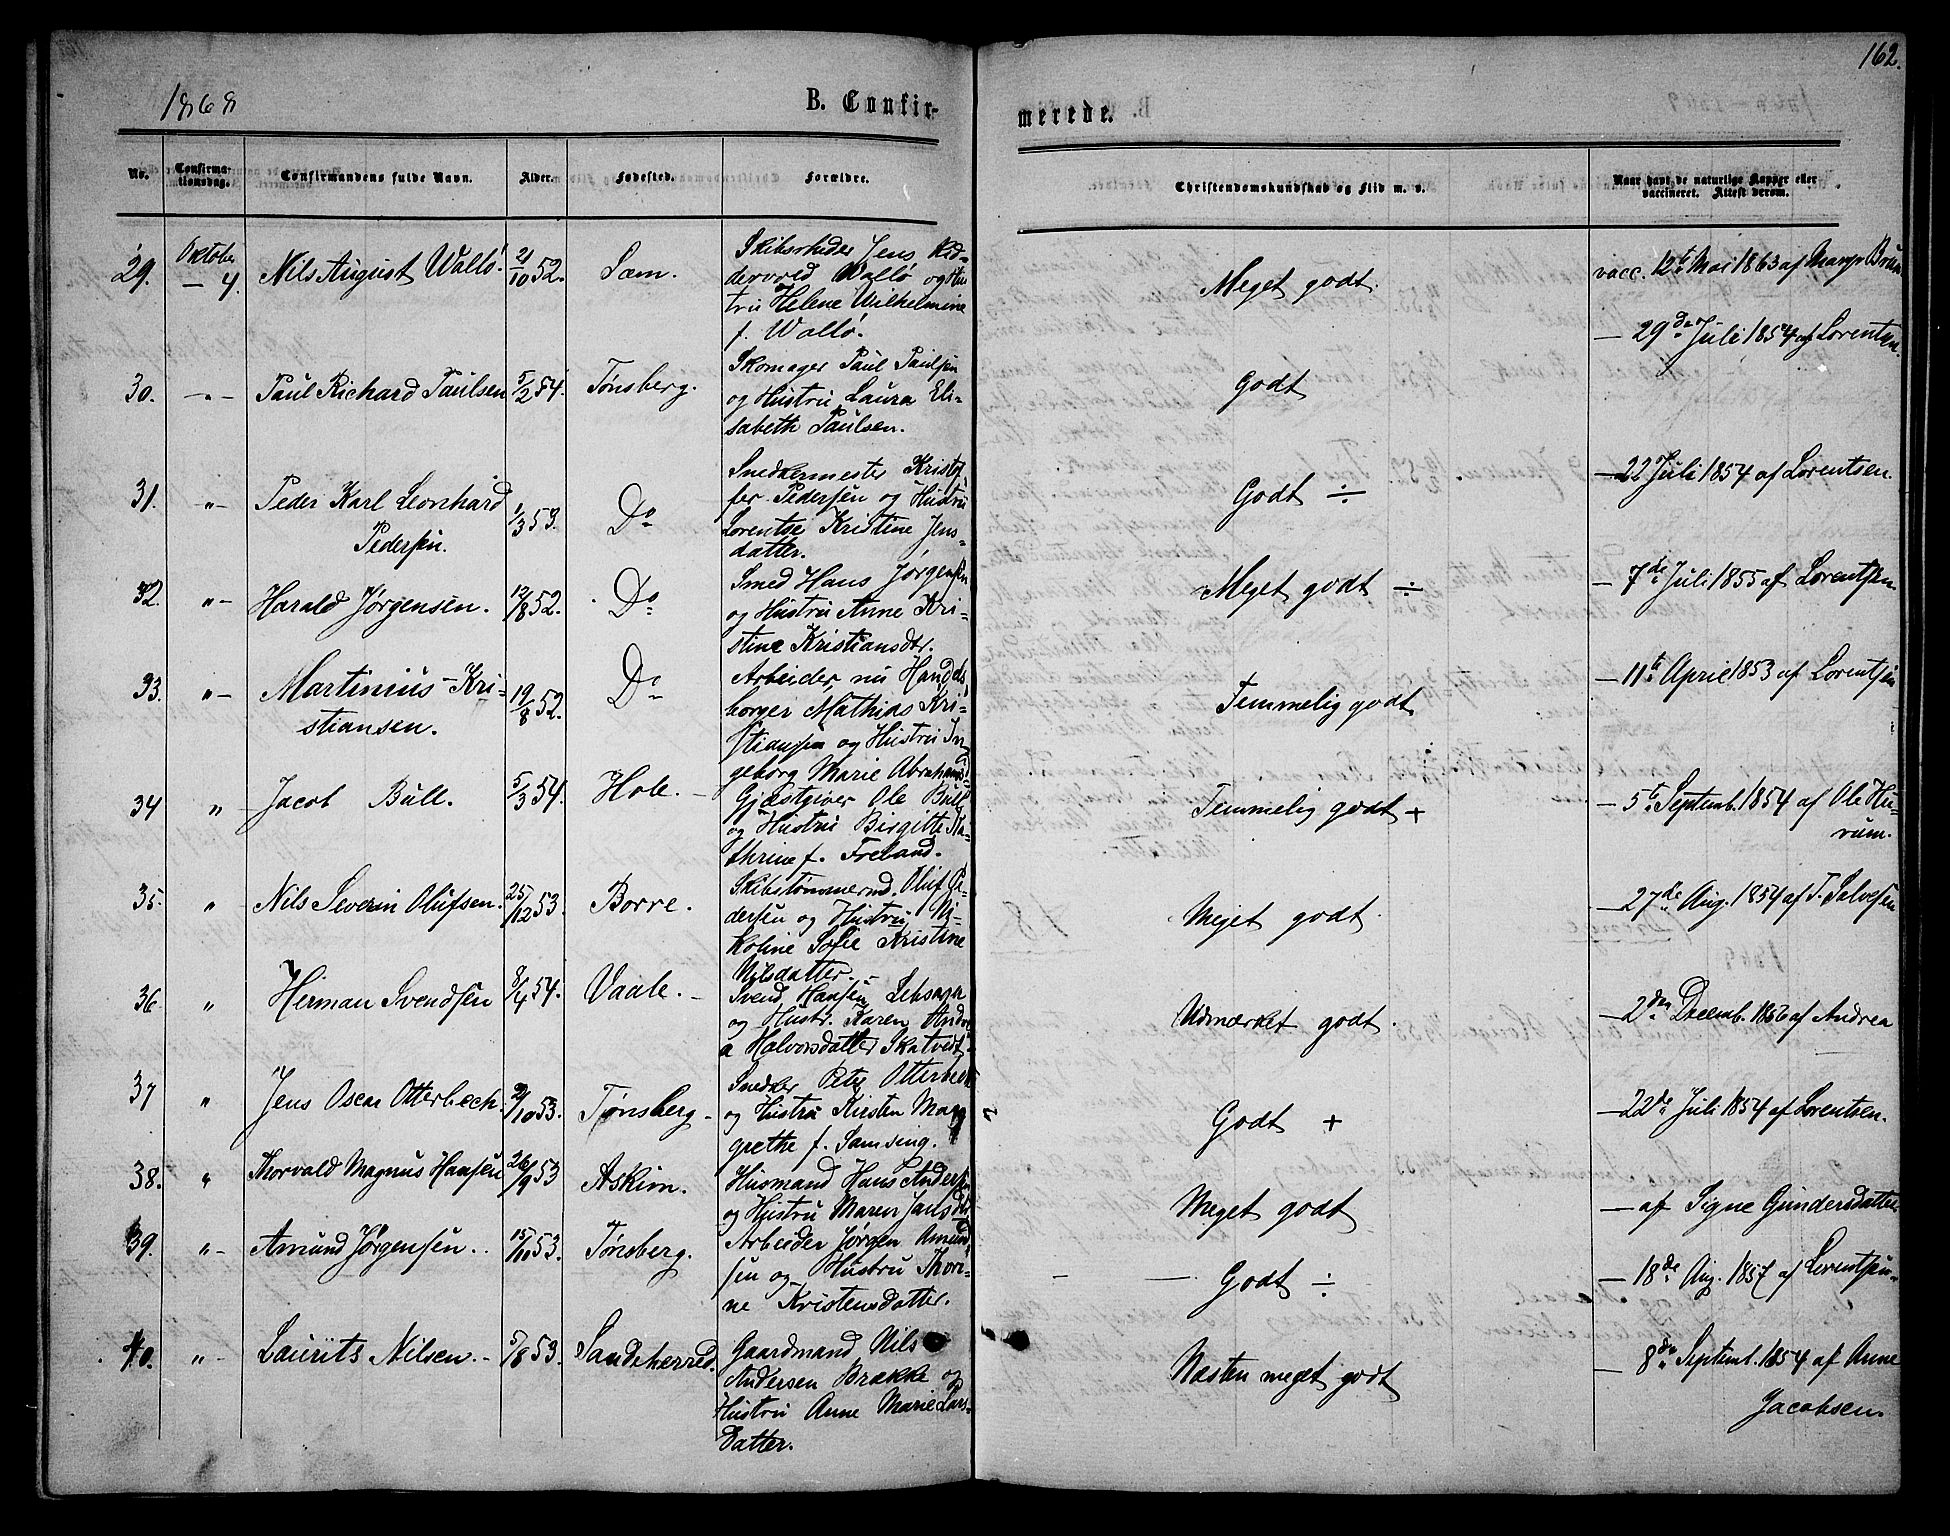 162.
1868
B. Confir-
merede.
No.
Confirma-
tionsdag.
Confirmandens fulde Navn.
Alder.
Fødested.
Forældre.
Christendomskundskab og Flid m. v.
Naar havt de naturlige Kopper eller
vaccineret. Attest derom.
29.
Oktober
— 4.
Nils August Wallö.
21/10 52.
Sem.
Skibsrheder Jens Rid-
dervold Wallö og Hus-
tru Helene Wilhelmine
f. Wallö.
Meget godt.
vacc. 12te Mai 1863 af Brun
30.
—"—
Paul Richard Paulsen
5/2 54.
Tønsberg.
Skomager Paul Paulsen
og Hustru Laura Eli-
sabeth Paulsen.
Godt
— 29de Juli 1854 af Lorentsen.
31.
"—
Peder Karl Leonhard
Pedersen.
1/3 53.
Do
Snedkermester Kristof-
fer Pedersen og Hustru
Lorentse Kristine Jens-
datter.
Godt ÷
— 22 Juli 1854 af Lorentsen.
32.
"—
Harald Jørgensen.
12/8 52.
Do
Smed Hans Jørgensen
og Hustru Anne Kri-
stine Kristiansdtr.
Meget godt ÷
— 7de Juli 1855 af Lorentsen.
33.
"—
Martinius Kri-
stiansen.
19/8 52.
Do
Arbeider, nu Handels-
borger Mathias Kri-
stiansen og Hustru In-
geborg Marie Abrahamsd.
Temmelig godt
— 11te April 1853 af Lorentsen
34
"
Jacob Bull.
5/3 54.
Hole. —
Gjæstgiver Ole Bull
og Hustru Birgitte Ka-
thrine f. Freland.
Temmelig godt +
— 5te Septemb. 1854 af Ole Hu-
rum.
35.
"
Nils Severin Olufsen.
25/12 53.
Borre.
Skibstømmermd. Oluf Pe-
dersen og Hustru Ni-
koline Sofie Kristine
Nilsdatter.
Meget godt.
— 27de Aug. 1854 af T. Salvesen
36.
"
Herman Svendsen
8/4 54.
Vaale. —
Svend Hansen
og Hustr. Karen Andre-
a Halvorsdatter Skatvedt
Udmærket godt.
— 2den Decemb. 1856 af Andrea
37
"
Jens Oscar Otterbech.
21/10 53.
Tønsberg —
Snedker Peter Otterbech
og Hustru Kirsten Mar-
grethe f. Samsing.
Godt +
— 22de Juli 1854 af Lorentsen.
38.
"
Thorvald Magnus Hansen
26/9 53
Askim.
Husmand Hans Andersen
og Hustru Maren Jansdtr
Meget godt
— af Signe Gundersdatter
39.
"—
Amund Jørgensen.
15/11 53.
Tønsberg.
Arbeider Jørgen Amund-
sen og Hustru Thori-
ne Kristensdatter.
Godt ÷
— 18de Aug. 1857 af Lorentsen
40.
"—
Laurits Nilsen. —
5/8 53.
Sandeherred.
Gaardmand Nils
Andersen Brække og
Hustru Anne Marie Lars-
datter.
Næsten meget godt
— 8de Septemb. 1854 af Anne
Jacobsen.